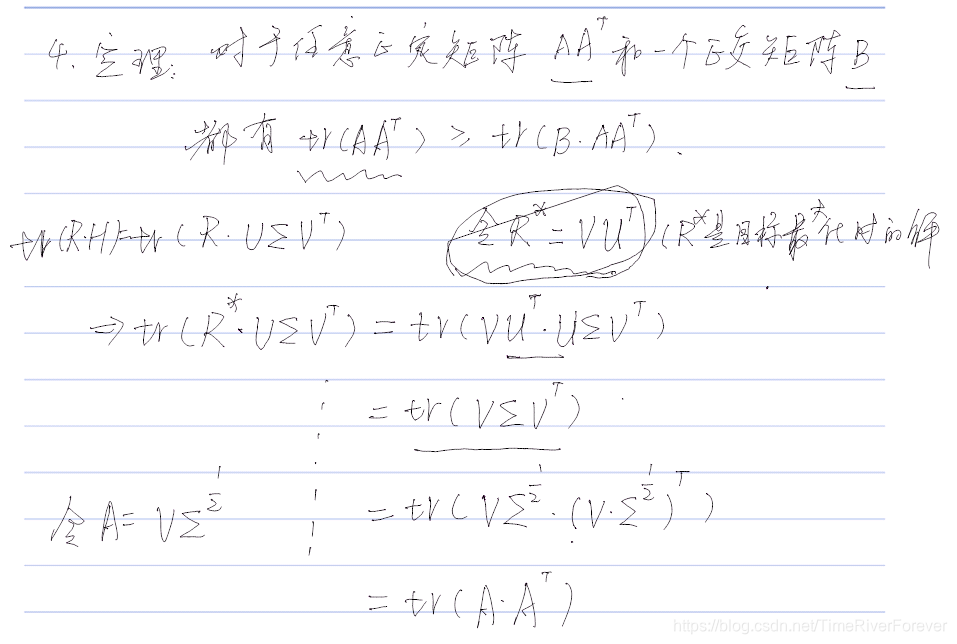 4. 定理: 对于任意正定矩阵 AAᵀ 和一个正交矩阵 B
都有 tr(AAᵀ) ≥ tr(B·AAᵀ).
tr(R·H)=tr(R·UΣVᵀ) 令 R* = VUᵀ (R*是目标最大化时的解
⇒ tr(R*·UΣVᵀ) = tr(VUᵀ·UΣVᵀ)
= tr(VΣVᵀ)
令 A = VΣ^½ = tr(VΣ^½·(V·Σ^½)ᵀ)
= tr(A·Aᵀ)
https://blog.csdn.net/TimeRiverForever